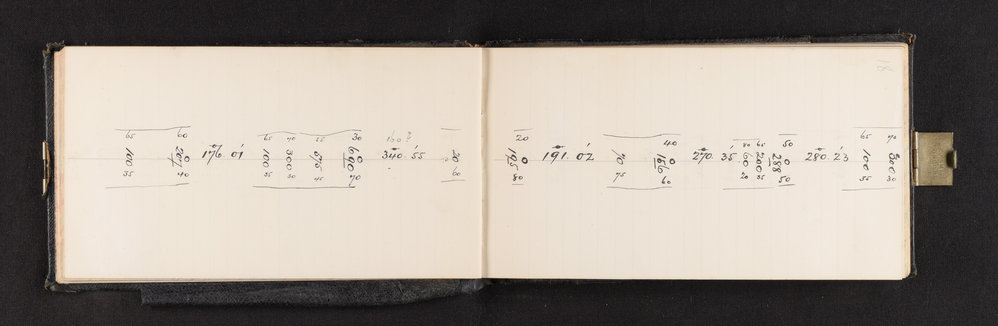 18
65 60
100 207 176.01
35 40
65 70 55 30 160?
100 300 675 690 340.55
35 30 45 70
20
60
20
195 191.02
80
40
70 166 270.35
75 60
80 65 50
60 200 288 280.23
20 35 50
65 70
100 300
35 30